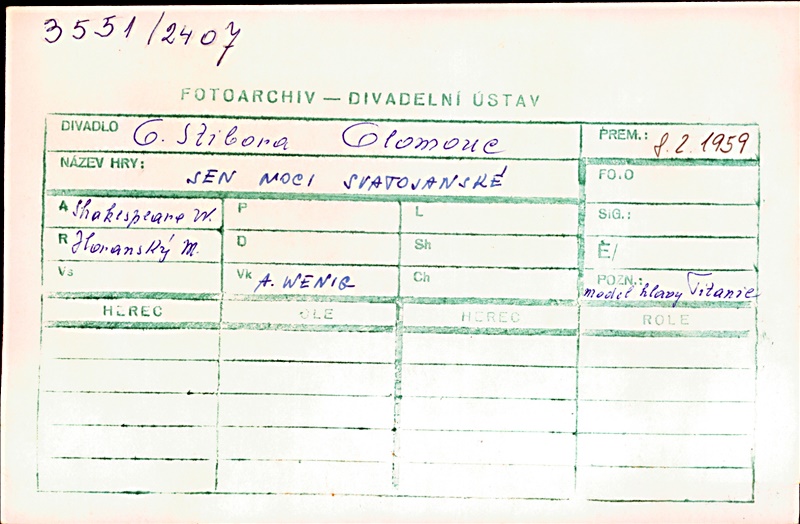 3551/2407
FOTOARCHIV — DIVADELNÍ ÚSTAV
DIVADLO O. Stibora Olomouc PREM.: 8.2.1959
NÁZEV HRY: SEN NOCI SVATOJANSKÉ FO.O
A Shakespeare W. P L SIG.:
R Horanský M. D Sh Ē/
Vs Vk A. WENIG Ch POZN.: model hlavy Titanie
HEREC OLE HEREC ROLE